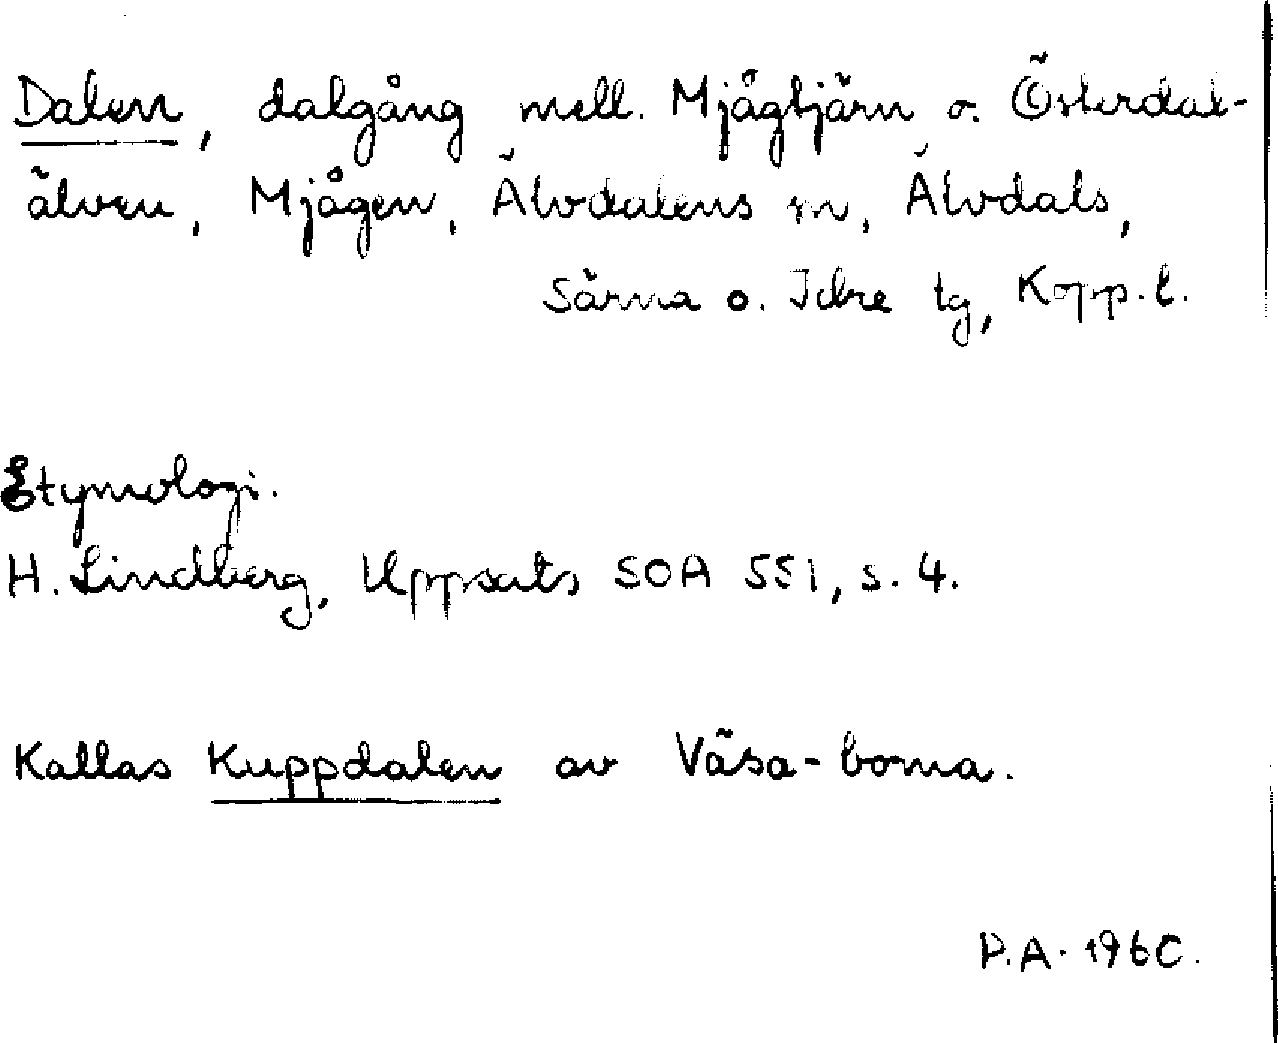 Dalen, dalgång mell. Mjågtjärn o. Österdal-
älven, Mjågen, Älvdalens sn, Älvdals,
Särna o. Idre tg, Kopp. l.
Etymologi.
H. Lindberg, Uppsats SOA 551, s. 4.
Kallas Kuppdalen av Väsa-borna.
P.A. 1960.